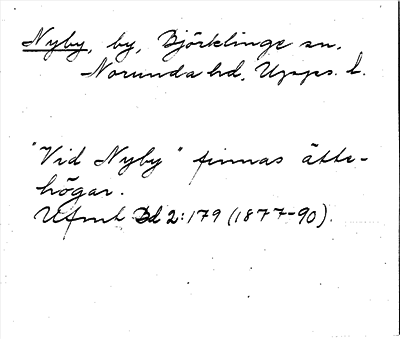 Nyby, by, Björklinge sn.
Norunda hd, Upps. l.
"Vid Nyby" finnas ätte-
högar.
Ufmt Bd 2:179 (1877-90).